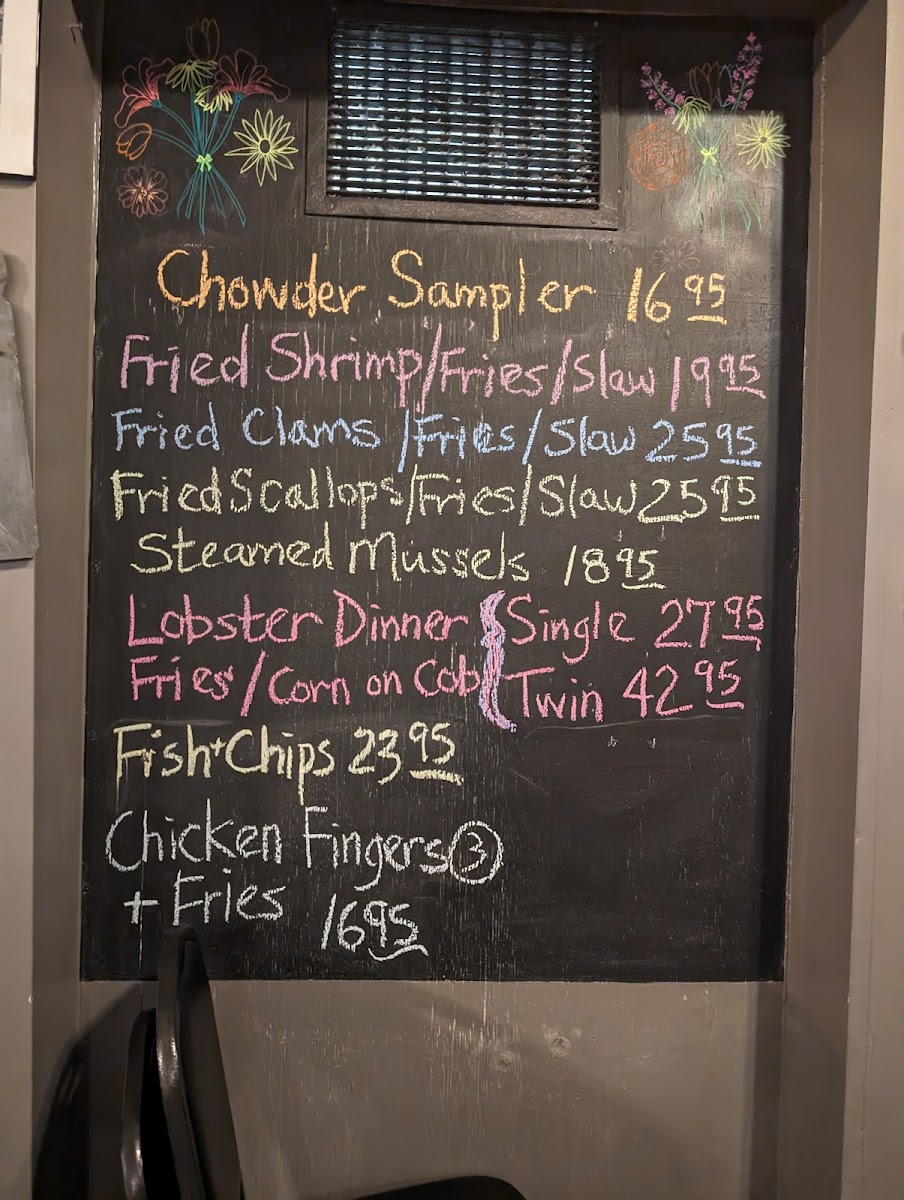 Chowder Sampler 16 95
Fried Shrimp/Fries/Slaw 19 95
Fried Clams/Fries/Slaw 25 95
Fried Scallops/Fries/Slaw 25 95
Steamed Mussels 18 95
Lobster Dinner { Single 27 95
Fries/Corn on Cob { Twin 42 95
Fish+Chips 23 95
Chicken Fingers ③
+ Fries 16 95